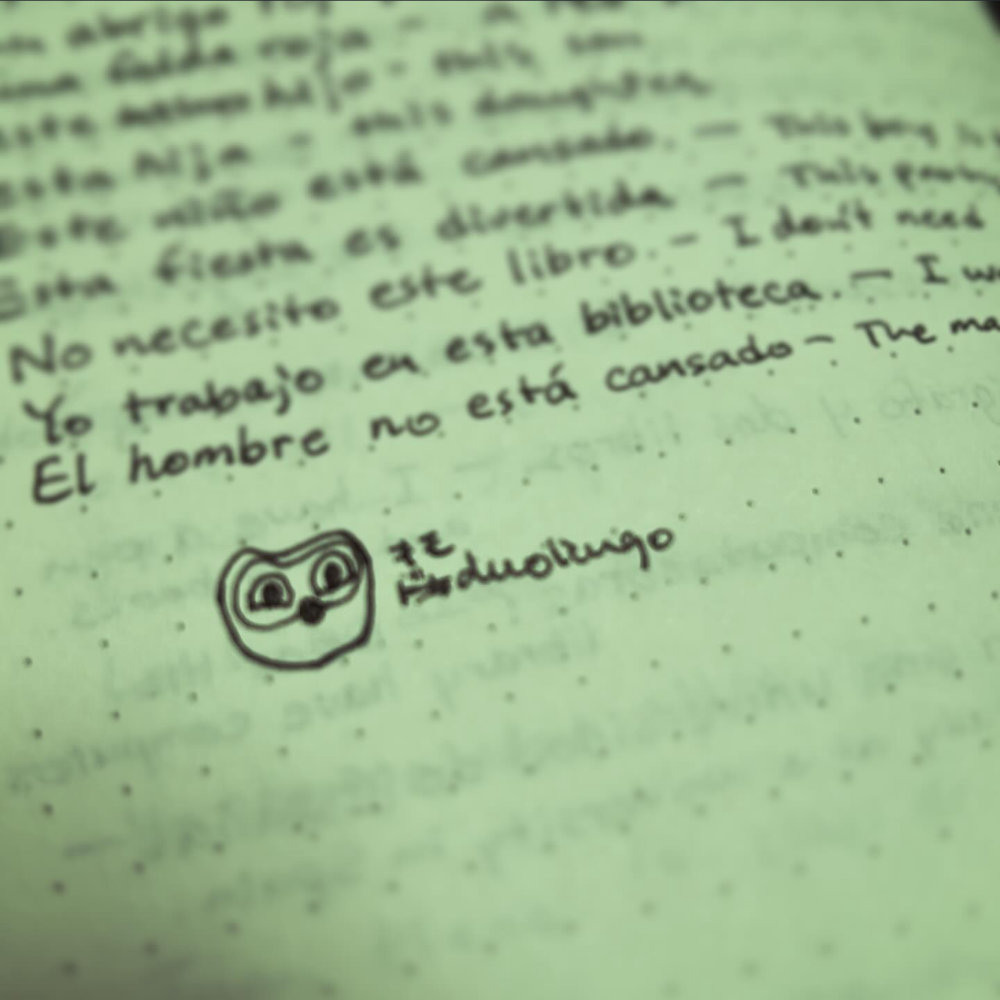 abrigo
una falda roja - a red
este hijo - this son
esta hija - this daughter
Este niño está cansado. - This boy is
Esta fiesta es divertida - This party
No necesito este libro. - I don't need
Yo trabajo en esta biblioteca. - I wo
El hombre no está cansado - The ma
duolingo